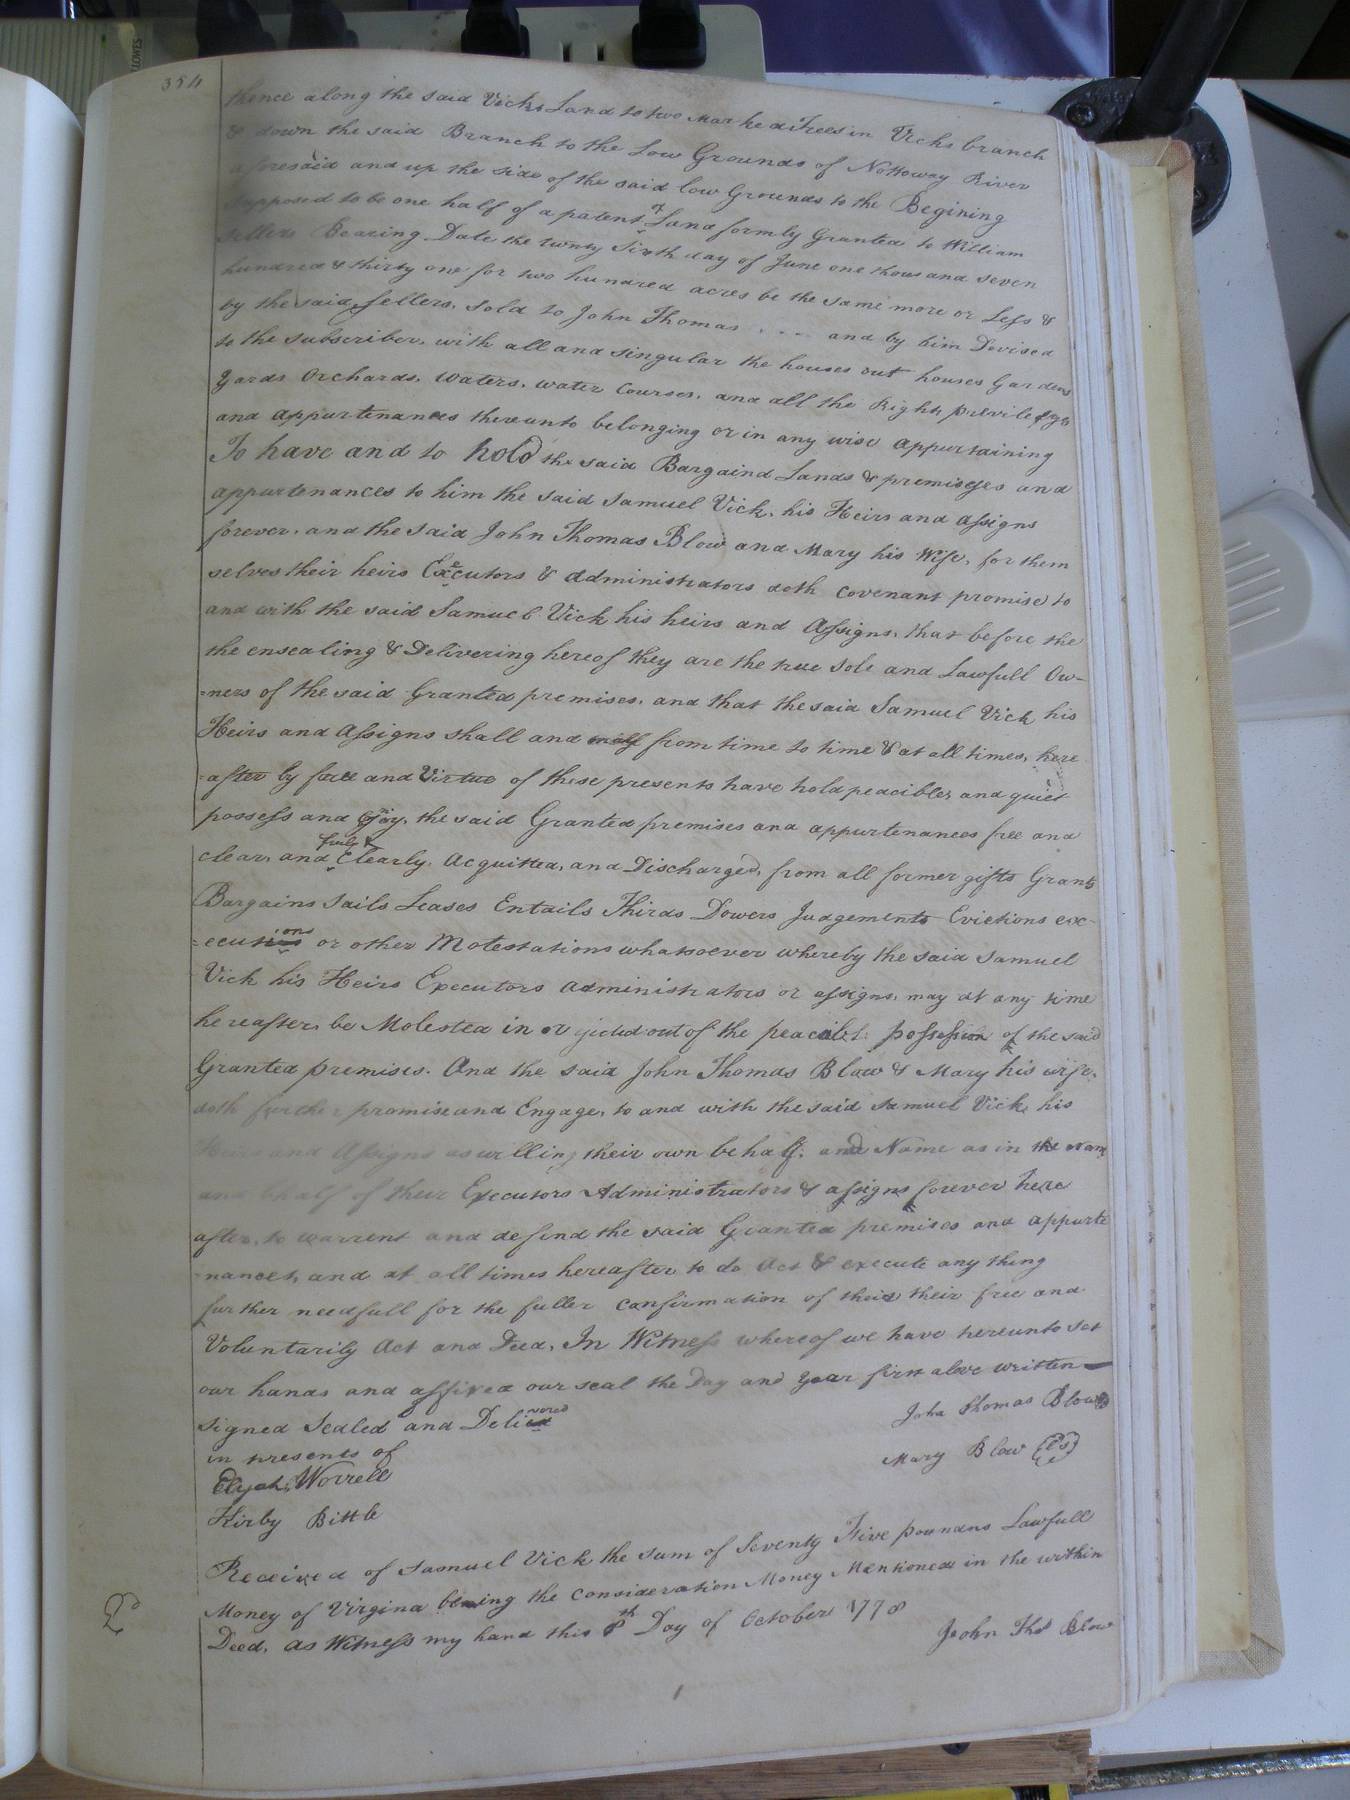 354
thence along the said Vicks Land to two Marked Trees in Vicks branch
& down the said Branch to the Low Grounds of Nottoway River
aforesaid and up the side of the said low Grounds to the Begining
Supposed to be one half of a patent of Land formly Granted to William
Sellers Bearing Date the twenty Sixth day of June one thousand seven
hundred & thirty one for two hundred acres be the same more or Less &
by the said Sellers, sold to John Thomas - - - - and by him Devised
to the subscriber, with all and singular the houses out houses Gardens
yards Orchards, waters, water Courses, and all the Rights previledges
and appurtenances thereunto belonging or in any wise appurtaining
To have and to hold the said Bargaind Lands & premisses and
appurtenances to him the said Samuel Vick, his Heirs and assigns
forever, and the said John Thomas Blow and Mary his Wife, for them
selves their heirs Executors & administrators doth covenant promise to
and with the said Samuel Vick his heirs and Assigns, that before the
the ensealing & Delivering hereof they are the true Sole and Lawfull Ow-
=ners of the said Granted premises, and that the said Samuel Vick his
Heirs and Assigns shall and from time to time & at all times, here
=after by force and Virtue of these presents have hold peacible, and quiet
possess and Enjoy, the said Granted premises and appurtenances free and
clear, and fully & Clearly, Acquitted, and Discharged, from all former gifts Grants
Bargains Sails Leases Entails Thirds Dowers Judgements Evictions exc-
=ecutions or other Molestations whatsoever whereby the said Samuel
Vick his Heirs Executors administrators or assigns, may at any time
hereafter, be Molested in or jected out of the peacible possession of the said
Granted premises. And the said John Thomas Blow & Mary his wife,
doth further promise and Engage, to and with the said Samuel Vick, his
Heirs and Assigns as will in their own behalf, and Name as in the Nam
and behalf of their Executors Administrators & assigns forever here
after, to warrent and defind the said Granted premises and appurte
=nances, and at all times hereafter to do Act & execute any thing
further needfull for the fuller confirmation of their free and
Voluntarily Act and Deed, In Witness whereof we have hereunto set
our hands and affixed our seal the Day and year first above written
John Thomas Blow
Signed Sealed and Delivered
in presents of
Mary Blow (Ls)
Elijah Worrell
Kirby Bittle
Received of Samuel Vick the Sum of Seventy Five pounds Lawfull
Money of Virgina being the consideration Money Mentioned in the within
Deed, as Witness my hand this 8th Day of October 1778
John Thos Blow